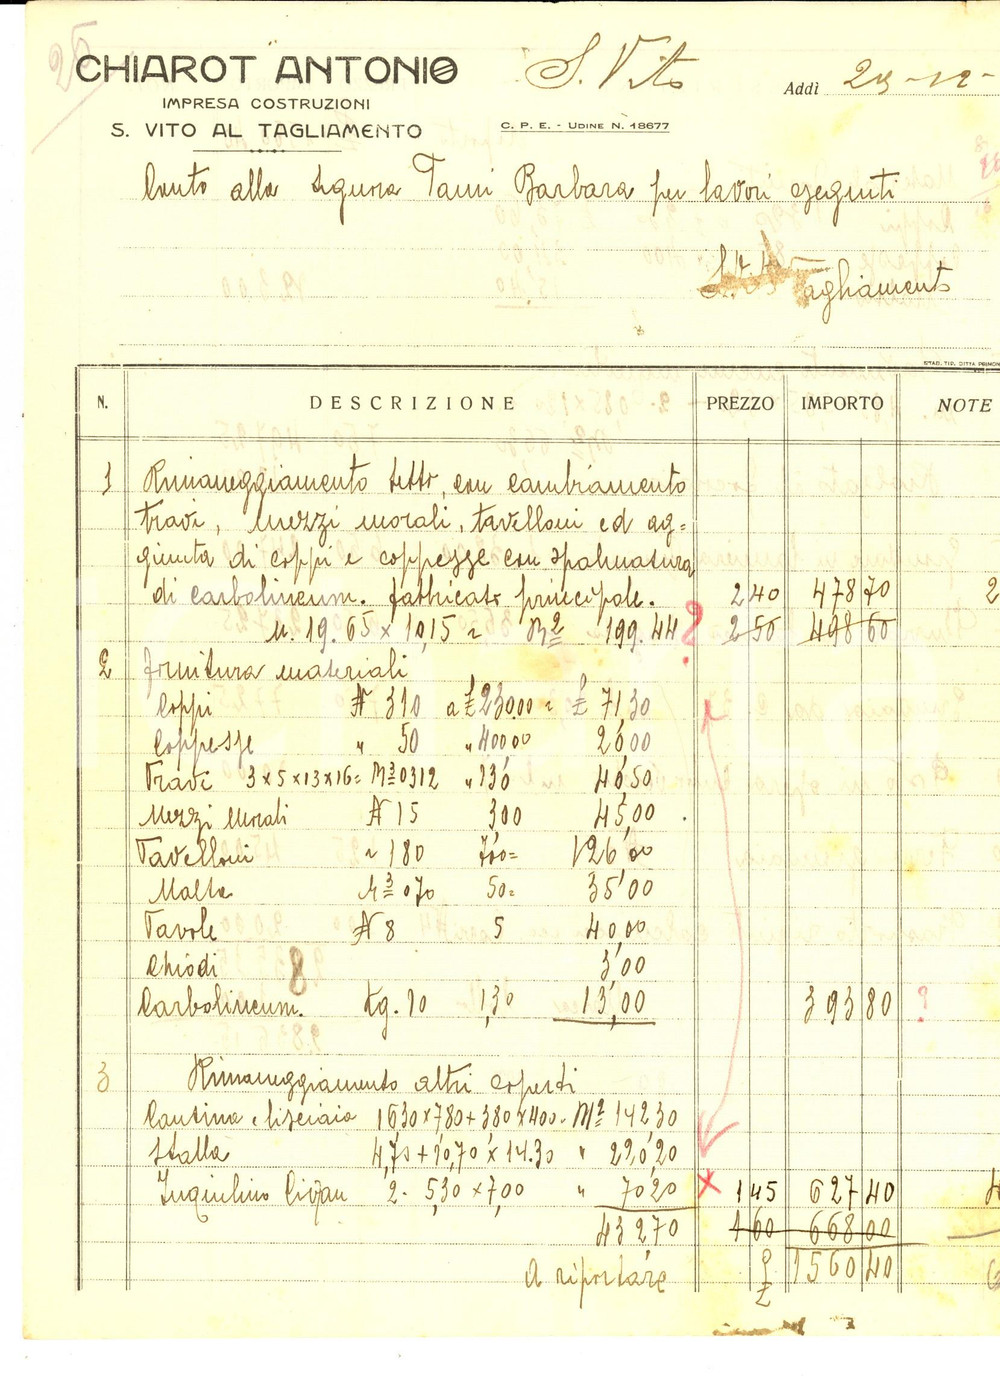 CHIAROT ANTONIO
IMPRESA COSTRUZIONI
S. VITO AL TAGLIAMENTO
S. Vito
Addì 29-12-
C. P. E. - UDINE N. 18677
Conto alla signora Tami Barbara per lavori eseguiti
S. Vito Tagliamento
STAB. TIP. DITTA PRIMON
N. DESCRIZIONE PREZZO IMPORTO NOTE
1 Rimaneggiamento tetto, con cambiamento
travi, mezzi morali, tavelloni ed ag=
giunta di coppi e coppesse con spalmatura
di carbolineum. fabbricato principale. 2 40 478 70 2
m. 19.65 x 10,15 = M2 199.44 ? 2 50 498 60
2 fornitura materiali
Coppi N 310 a £ 230.00 = £ 71,30
Coppesse " 50 " 400 00 20,00
Travi 3x5x13x16= M3 0312 " 130 40,50
Mezzi Morali N 15 300 45,00
Tavelloni " 180 700= 126,00
Malta M3 070 50= 35,00
Tavole N 8 5 40,00
Chiodi 8 3,00
Carbolineum. Kg. 10 1,30 13,00 393 80 ?
3 Rimaneggiamento altri coperti
Cantina e lisciaia 1630x780+380x400= M2 142,30
Stalla 4,70+10,70x14.30 " 220,20
Inquilino Cigan 2- 5,30x7,00 " 70 20 x 1 45 627 40
432,70 1 60 668 00
A riportare £ 1560 40